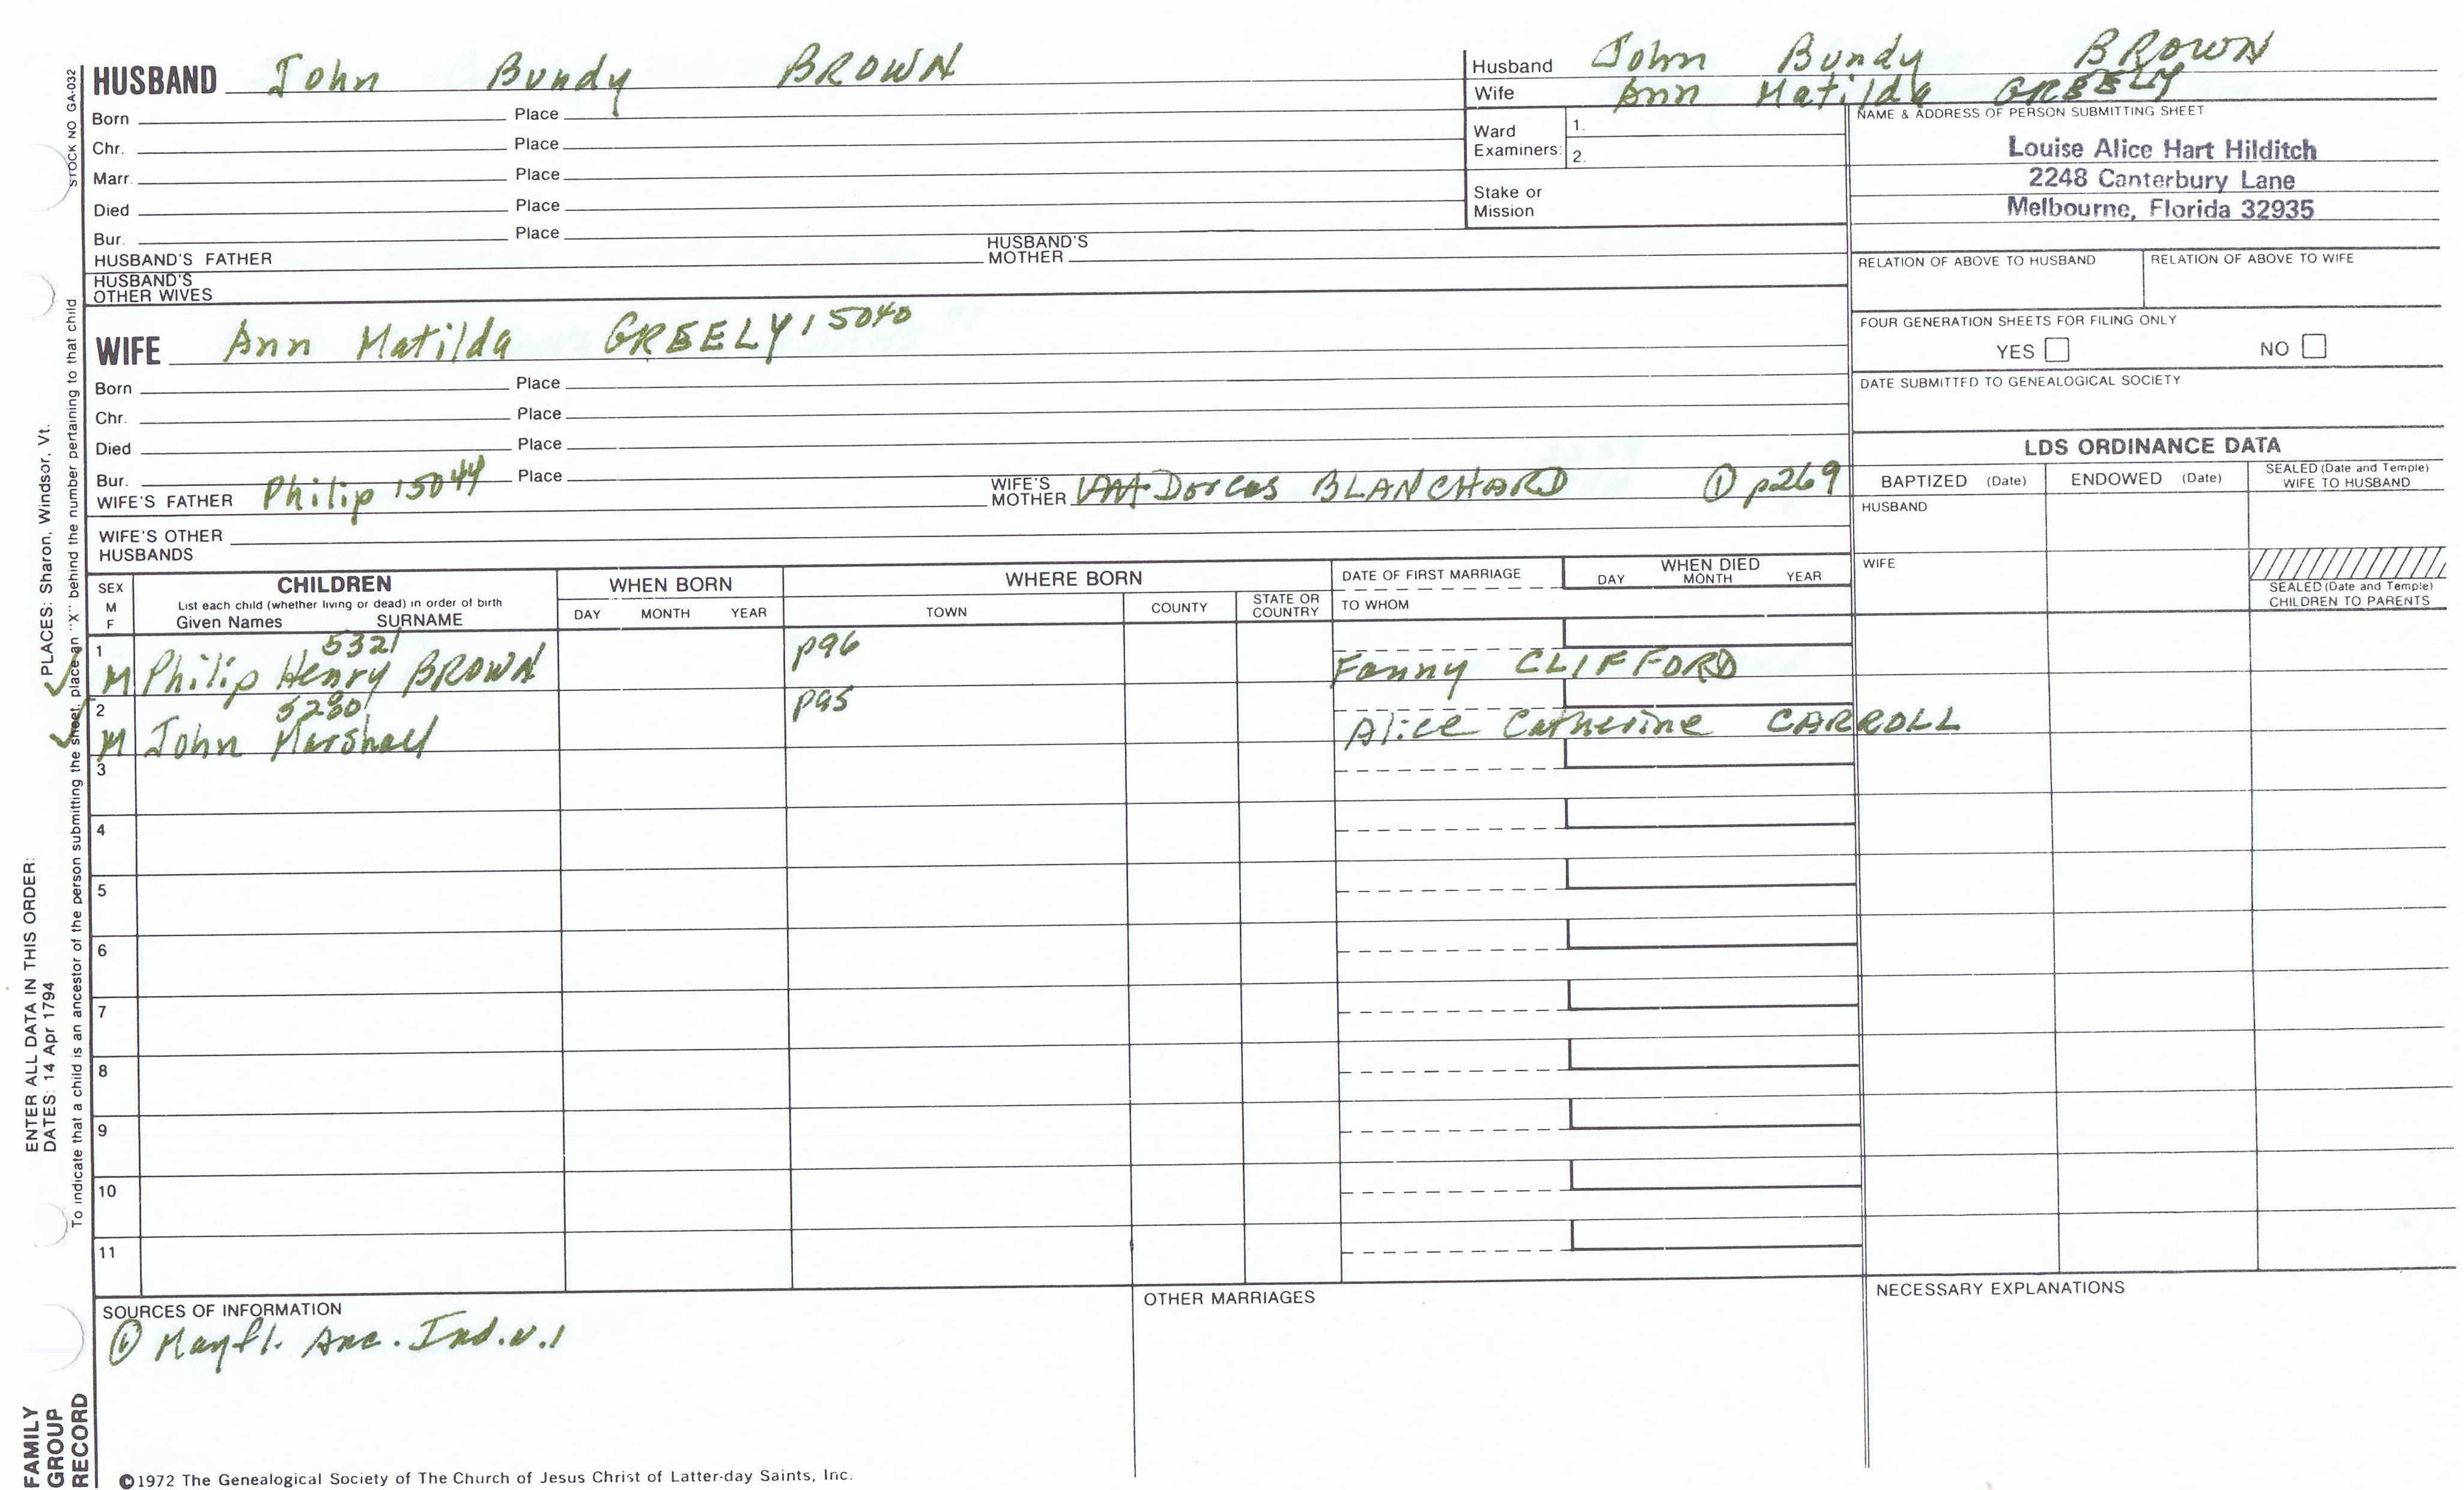 STOCK NO GA-032
HUSBAND John Bundy BROWN
Born Place
Chr. Place
Marr. Place
Died Place
Bur. Place
HUSBAND'S FATHER HUSBAND'S MOTHER
HUSBAND'S OTHER WIVES
Husband John Bundy BROWN
Wife Ann Matilda GREELY
Ward Examiners: 1.
2.
Stake or Mission
NAME & ADDRESS OF PERSON SUBMITTING SHEET
Louise Alice Hart Hilditch
2248 Canterbury Lane
Melbourne, Florida 32935
RELATION OF ABOVE TO HUSBAND RELATION OF ABOVE TO WIFE
FOUR GENERATION SHEETS FOR FILING ONLY
YES NO
DATE SUBMITTED TO GENEALOGICAL SOCIETY
WIFE Ann Matilda GREELY 15040
Born Place
Chr. Place
Died Place
Bur. Place
WIFE'S FATHER Philip 15044 WIFE'S MOTHER Dorcas BLANCHARD ① p269
WIFE'S OTHER HUSBANDS
LDS ORDINANCE DATA
BAPTIZED (Date) ENDOWED (Date) SEALED (Date and Temple) WIFE TO HUSBAND
HUSBAND
WIFE
SEALED (Date and Temple) CHILDREN TO PARENTS
SEX M F
CHILDREN
List each child (whether living or dead) in order of birth
Given Names SURNAME
WHEN BORN
DAY MONTH YEAR
WHERE BORN
TOWN COUNTY STATE OR COUNTRY
DATE OF FIRST MARRIAGE
TO WHOM
WHEN DIED
DAY MONTH YEAR
1 5321 p96
M Philip Henry BROWN Fanny CLIFFORD
2 5280 p95
M John Marshall Alice Catherine CARROLL
3
4
5
6
7
8
9
10
11
SOURCES OF INFORMATION
① Mayfl. Anc. Ind. v.1
OTHER MARRIAGES
NECESSARY EXPLANATIONS
ENTER ALL DATA IN THIS ORDER:
DATES: 14 Apr 1794 PLACES: Sharon, Windsor, Vt.
To indicate that a child is an ancestor of the person submitting the sheet, place an "X" behind the number pertaining to that child
FAMILY
GROUP
RECORD
©1972 The Genealogical Society of The Church of Jesus Christ of Latter-day Saints, Inc.